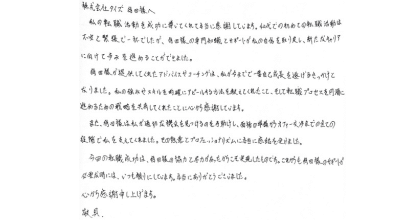 株式会社ワイズ 角田様へ
私の転職活動を成功に導いてくれて本当に感謝しています。私にとっての初めての転職活動は
不安と緊張で一杯でしたが、角田様の専門知識とサポートが私の自信を取り戻し、新たなキャリア
に向けて歩みを進めることができました。
角田様が提供してくれたアドバイスやコーチングは、私が今までで一番自己成長を遂げるきっかけと
なりました。私の強みやスキルを的確にアピールする方法を教えてくれたこと、そして転職プロセスを円滑に
進めるための戦略を共有してくれたことに心から感謝しています。
また、角田様は私が適切な機会を見つける手助けをし、面接の準備からオファー交渉までの全ての
段階で私を支えてくれました。その熱意とプロフェッショナリズムに本当に感銘を受けました。
今回の転職成功は、角田様の協力と尽力があったからこそ実現したものです。これからも角田様のサポートが
必要な時には、いつも頼りにしています。本当にありがとうございました。
心から感謝申し上げます。
敬具